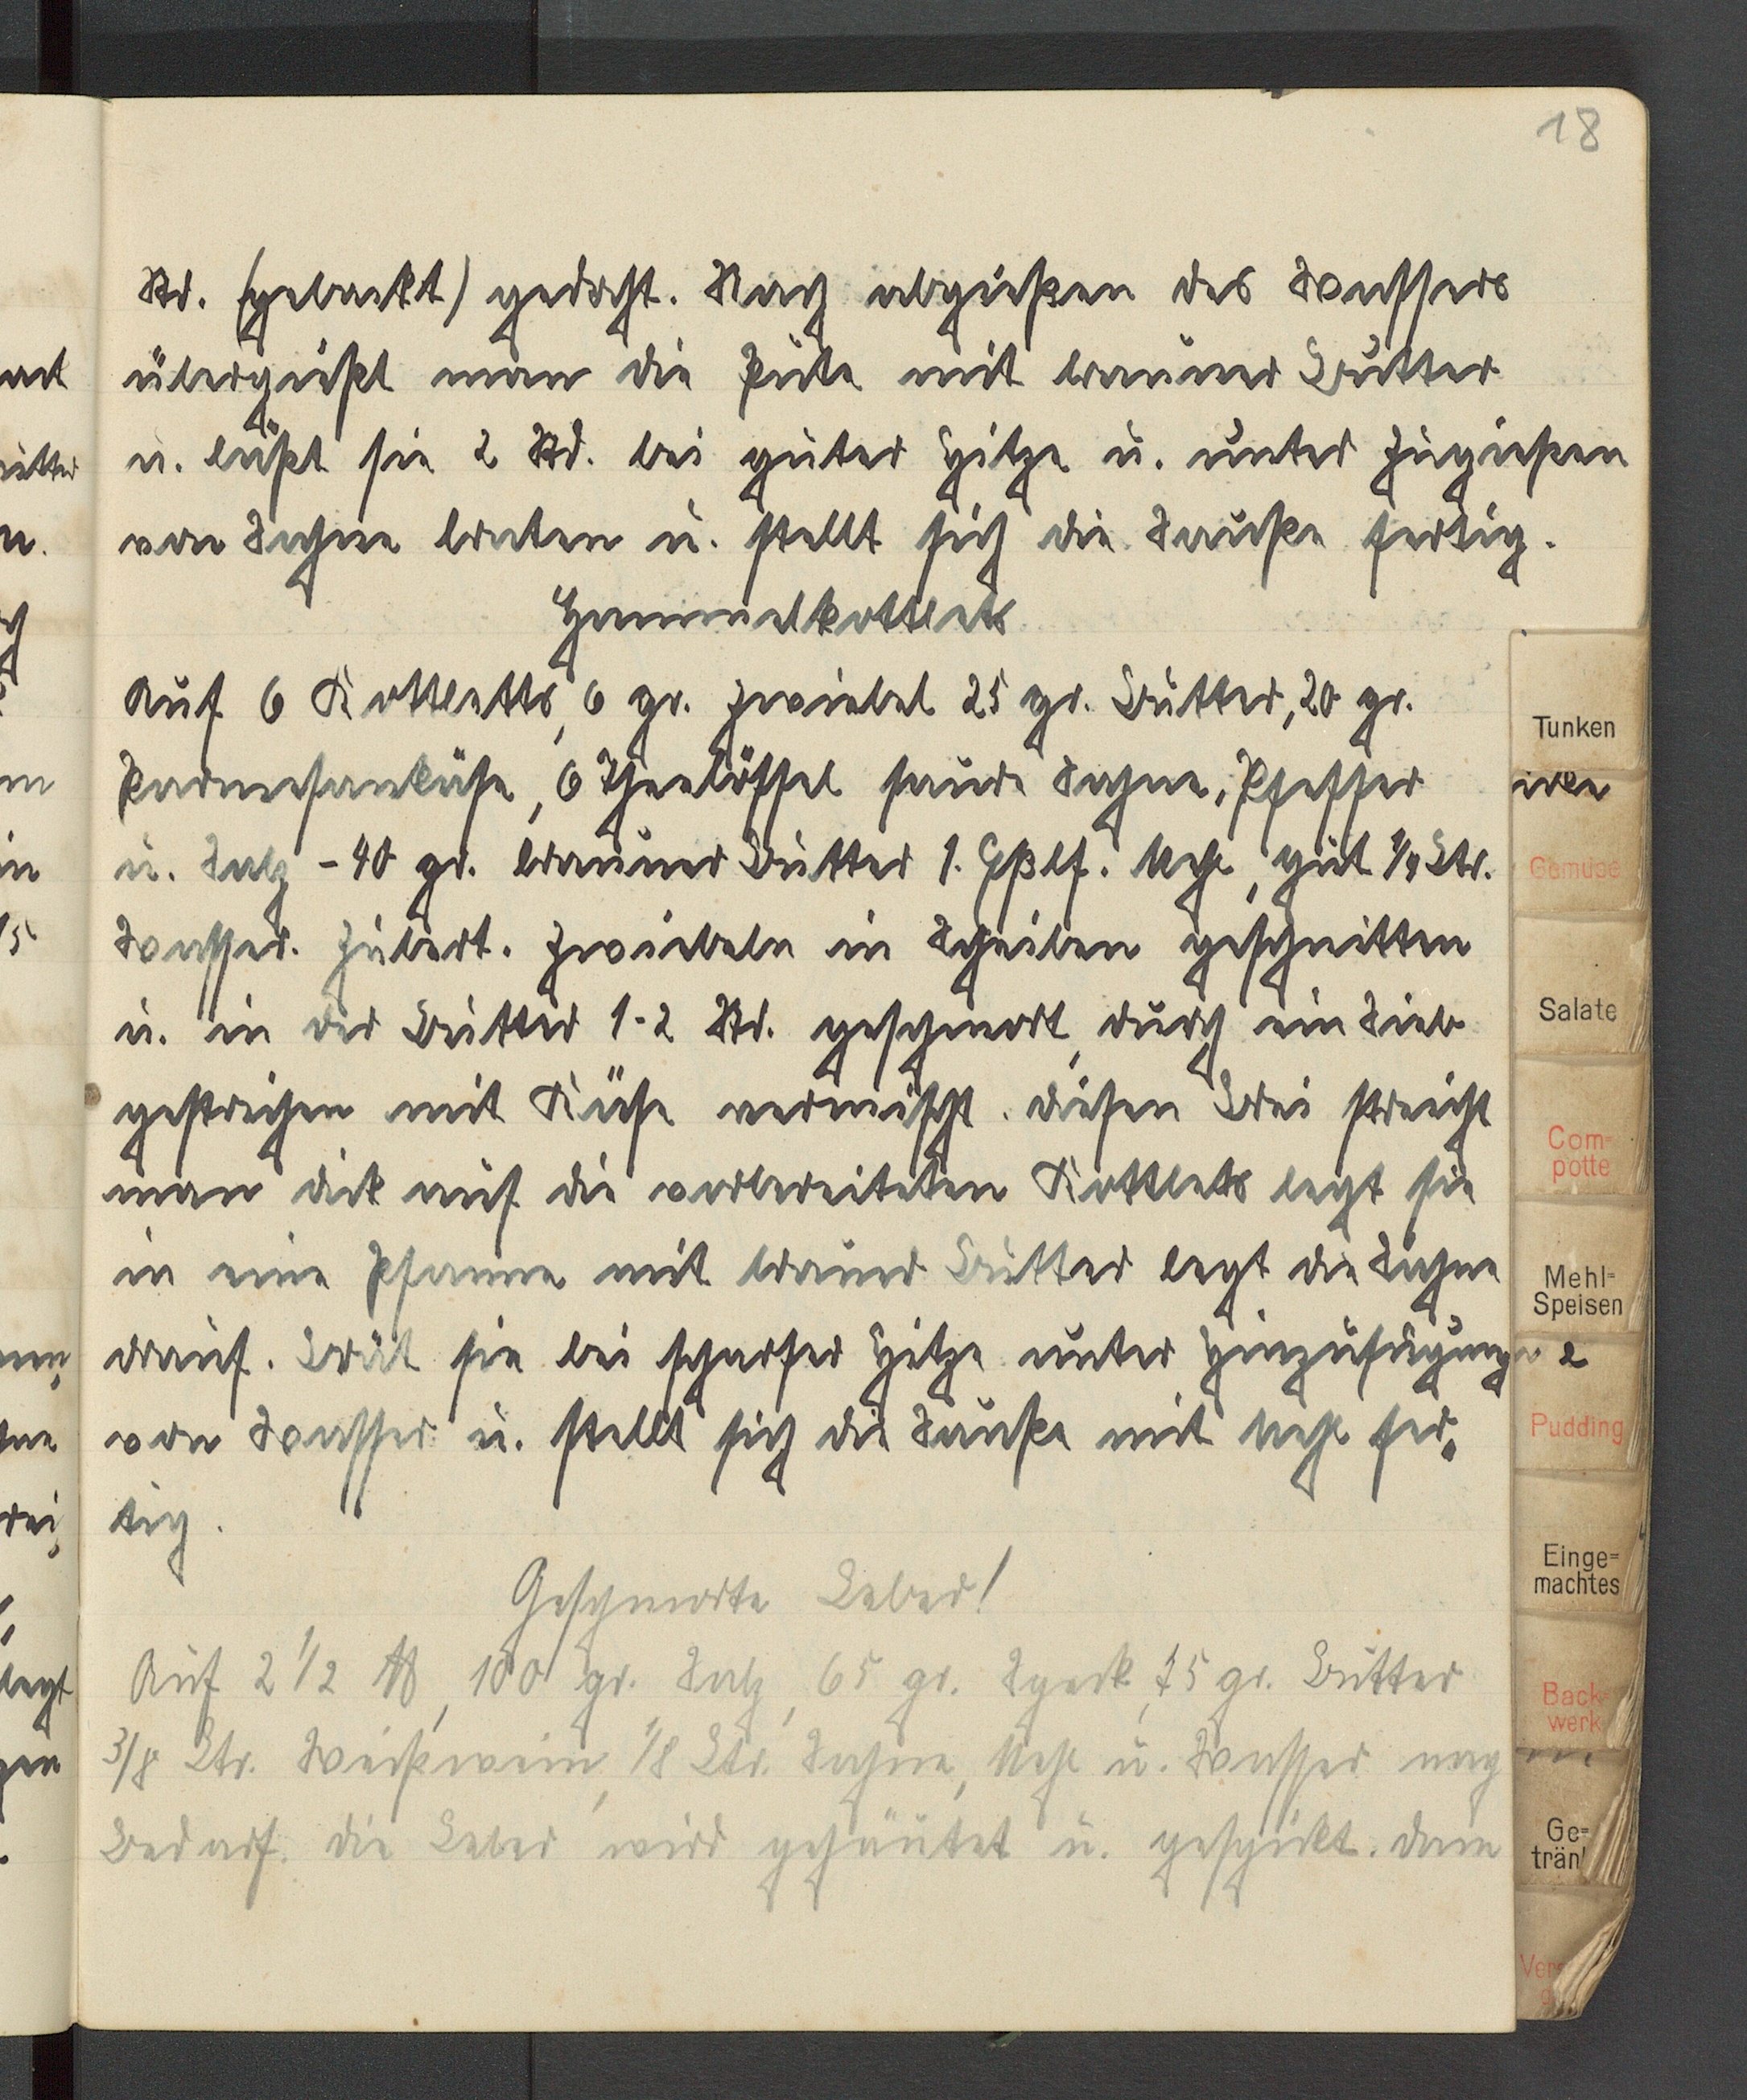 18
Std. (gedeckt) gedocht. Nach abgießen des Wassers
übergießt man die Pute mit brauner Butter
u. läßt sie 2 Std. bei guter Hitze u. unter Zugießen
von Sahne braten u. stellt sich die Sauße fertig.
Hammelkottlets
Auf 6 Kottletts, 6 gr. Zwiebel 25 gr. Butter, 20 gr.
Parmesankäse, 6 Theelöffel saure Sahne, Pfeffer
u. Salz - 40 gr. brauner Butter 1. Eßlf. Mehl, gut 1/4 Ltr.
Wasser. Zubert. Zwiebeln in Scheiben geschnitten
u. in der Butter 1-2 Std. geschmort, durch ein Sieb
gestrichen mit Käse vermischt. diesen Brei streicht
man dick auf die vorbereiteten Kottlets legt sie
in eine Pfanne mit brauner Butter legt die Sahne
drauf. Brät sie bei scharfer Hitze unter Hinzufügung
von Wasser u. stellt sich die Sauße mit Mehl fer-
tig.
Geschmorte Leber!
Auf 2 1/2 ℔, 100 gr. Salz, 65 gr. Speck, 75 gr. Butter
3/8 Ltr. Weißwein, 1/8 Ltr. Sahne, Mehl u. Wasser nach
Bedarf. die Leber wird gehäutet u. gespickt. dann
Tunken
Gemüse
Salate
Com-
potte
Mehl-
Speisen
Pudding
Einge-
machtes
Back-
werk
Ge-
tränk